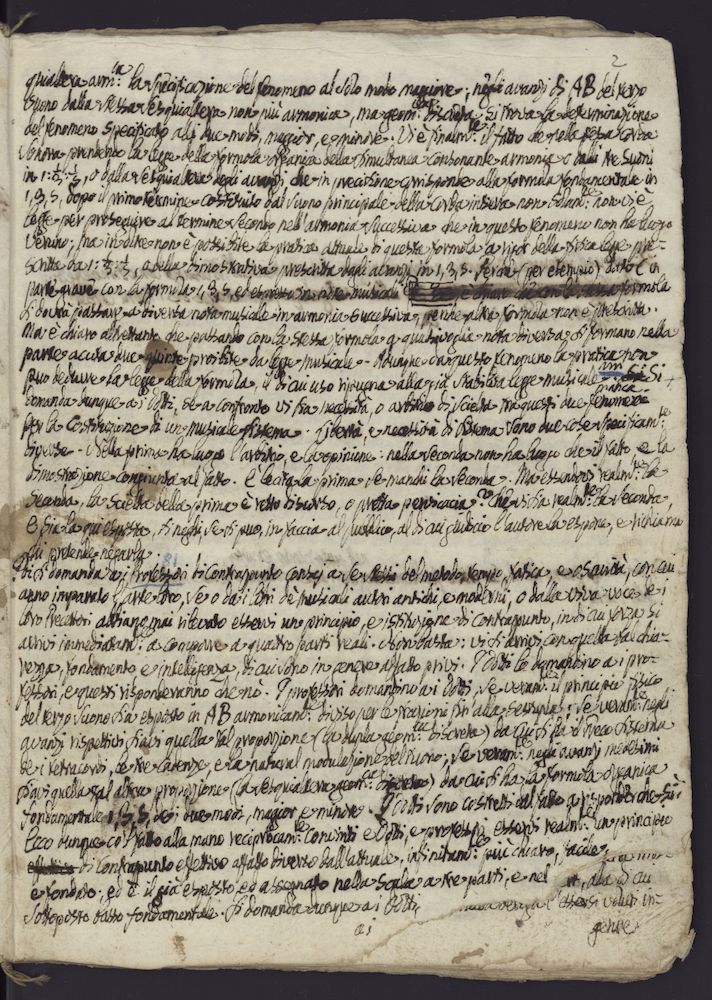 2
quialtera arm:ca la specificazione del fenomeno al solo modo maggiore; negli avanzi di AB del terzo
suono dalla stessa sesquialtera non più armonica, ma geom:ca discreta si trova la determinazione
del fenomeno specificato ai due modi, maggior, e minore. Vi è finalm:te il fatto della stessa corda
sonora prendendo la legge della formola organica della simultanea consonante armonia o dalli tre suoni
in 1:⅓:⅕, o dalla sesquialtera degli avanzi, che in precisione corrisponde alla formola fondamentale in
1, 3, 5, dopo il primo termine costituito dal suono principale della corda intiera non solam:te non v'è
legge per proseguire al termine secondo nell'armonia successiva che in questo fenomeno non ha luogo
veruno, ma in oltre non è possibile la pratica attuale di questa formola a rigor della fisica legge pre-
scritta da 1:⅓:⅕, o della dimostrativa prescritta dagli avanzi in 1, 3, 5. Perchè (per esempio) dato C in
parte grave con la formola 1, 3, 5, ed espresso in note musicali formola
si dovrà passare a diversa nota musicale in armonia successiva, perchè altra formola non è prescritta.
Ma è chiaro altrettanto che passando con la stessa formola a qualsivoglia nota diversa si formano nella
parte acuta due quinte proibite da legge musicale. Adunque da questo fenomeno la pratica non
può dedurre la legge della formola, il di cui uso ripugna alla già stabilita legge musicale Si
domanda dunque ai Dotti, se a confronto vi sia libertà, o arbitrio di scielta tra questi due fenomeni
per la costituzione di un musicale sistema. Libertà, e necessità di sistema sono due cose specificam:te
opposte. Nella prima ha luogo l'arbitrio, e l'opinione: nella seconda non ha luogo che il fatto e la
dimostrazione congiunta al fatto. È lecita la prima se manchi la seconda. Ma essendovi realm:te la
seconda, la scielta della prima è retto discorso, o pretta pervicacia? Che vi sia realm:te la seconda,
e sia la qui esposta, si neghi se si può, in faccia al pubblico, al di cui giudicio l'autore la espone, e richiama
chi pretende negarla.
Poi si domanda ai professori di contrapunto consci a se stessi del metodo, tempo, fatica, e oscurità, con cui
anno imparato l'arte loro, se o dai libri de musicali autori antichi e moderni, o dalla viva voce de i
loro Precettori abbiano mai rilevato esservi un principio, e istituzione di contrapunto, in di cui forza si
arrivi immediatam:te a comporre a quattro parti reali. Non basta: vi si arrivi con quella tal chia-
rezza, fondamento e intelligenza, di cui sono in genere affatto privi. I Dotti lo domandino a i pro-
fessori, e questi risponderanno che no. I professori domandino ai Dotti, se veram:te il principio fisico
del terzo suono sia esposto in AB armonicam:te diviso per le frazioni sin'alla sestupla: se veram:te negli
avanzi rispettivi siavi quella tal proporzione (la dupla geom:ca discreta) da cui si ha il Greco sistema
de i tetracordi, le tre cadenze, e la natural modulazione del tuono; se veram:te negli avanzi medesimi
siavi quella tal altra proporzione (la sesquialtera geom:ca discreta) da cui si ha la formola organica
fondamentale 1, 3, 5, dei due modi, maggior e minore. I Dotti sono costretti dal fatto a risponder che sì:
Ecco dunque col fatto alla mano reciprocam:te convinti e Dotti, e professori esservi realm:te un principio
di contrapunto effettivo affatto diverso dall'attuale, infinitam:te più chiaro, facile,
e fondato; ed è il già esposto ed assegnato nella scala a tre parti, e nel
sottoposto basso fondamentale. Si domanda dunque ai Dotti,
genue